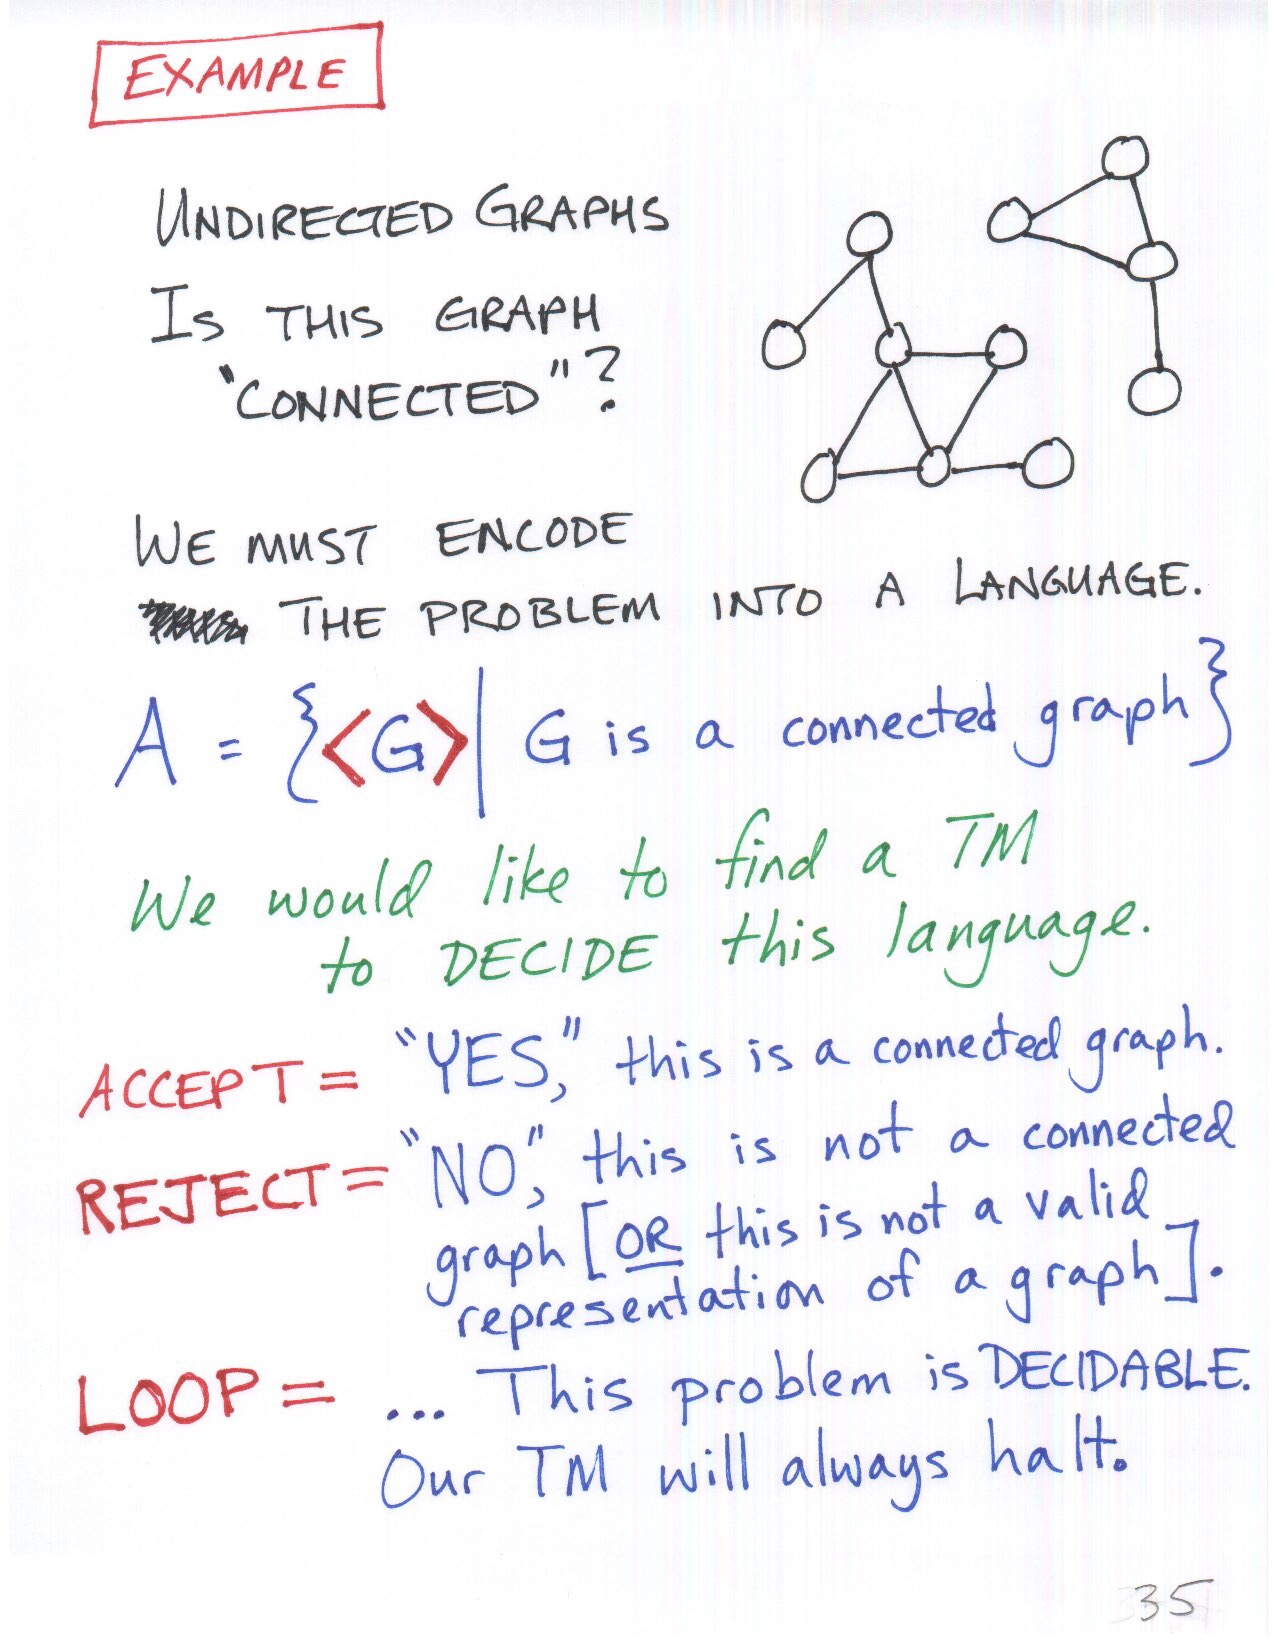 EXAMPLE
UNDIRECTED GRAPHS
IS THIS GRAPH
"CONNECTED"?
WE MUST ENCODE
THE PROBLEM INTO A LANGUAGE.
A = {<G>| G is a connected graph}
We would like to find a TM
to DECIDE this language.
ACCEPT = "YES," this is a connected graph.
REJECT = "NO", this is not a connected
graph [OR this is not a valid
representation of a graph].
LOOP = ... This problem is DECIDABLE.
Our TM will always halt.
35